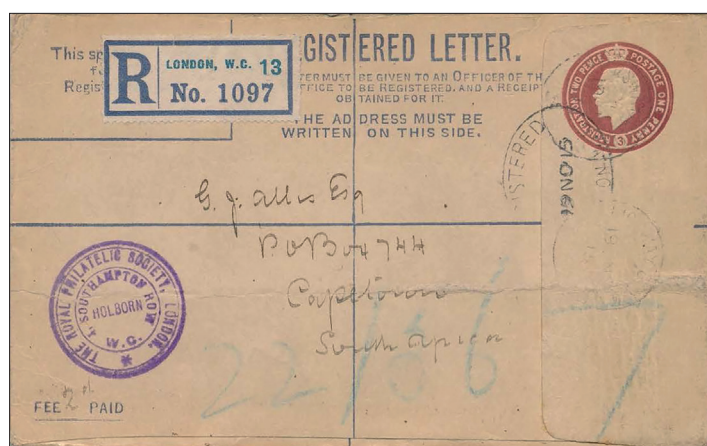 This sp
REGISTERED LETTER.
f
Regis
TER MUST BE GIVEN TO AN OFFICER OF TH
FFICE TO BE REGISTERED, AND A RECEIPT
OBTAINED FOR IT.
THE ADDRESS MUST BE
WRITTEN ON THIS SIDE.
R
LONDON, W.C. 13
No. 1097
REGISTRATION TWO PENCE POSTAGE ONE PENNY
3
REGISTERED
19 NO 15
G. J. Allis Esq
P.O Box 744
Capetown
South Africa
THE ROYAL PHILATELIC SOCIETY, LONDON.
4, SOUTHAMPTON ROW
HOLBORN
W.C.
22/36
7
FEE 2d PAID